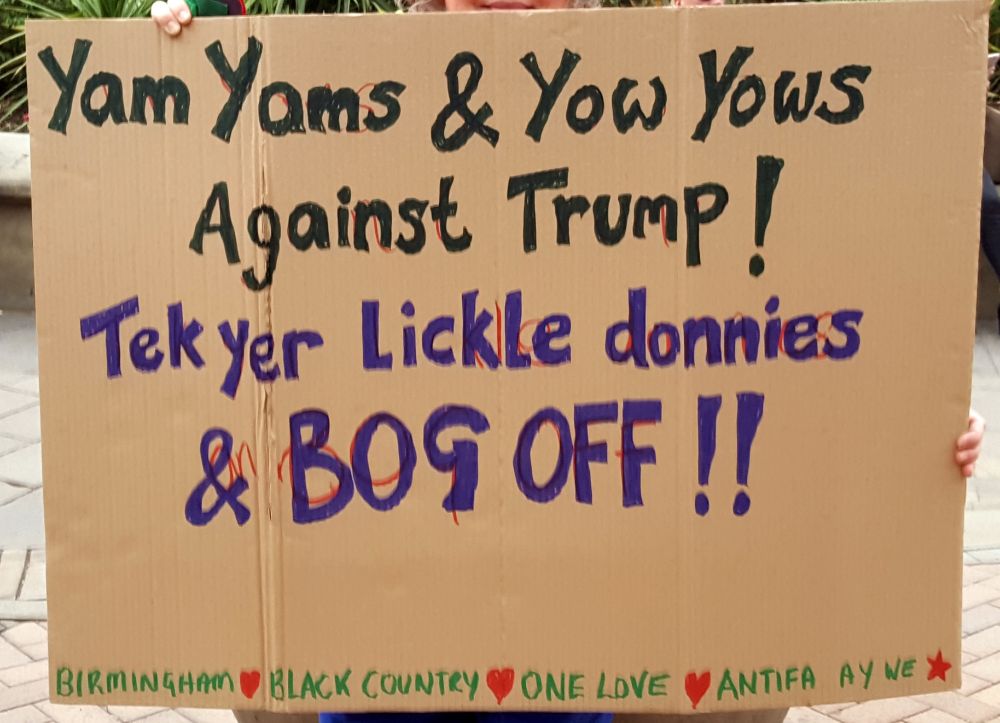 Yam Yams & Yow Yows
Against Trump!
Tek yer Lickle donnies
& BOG OFF!!
BIRMINGHAM ♥ BLACK COUNTRY ♥ ONE LOVE ♥ ANTIFA AY WE ★